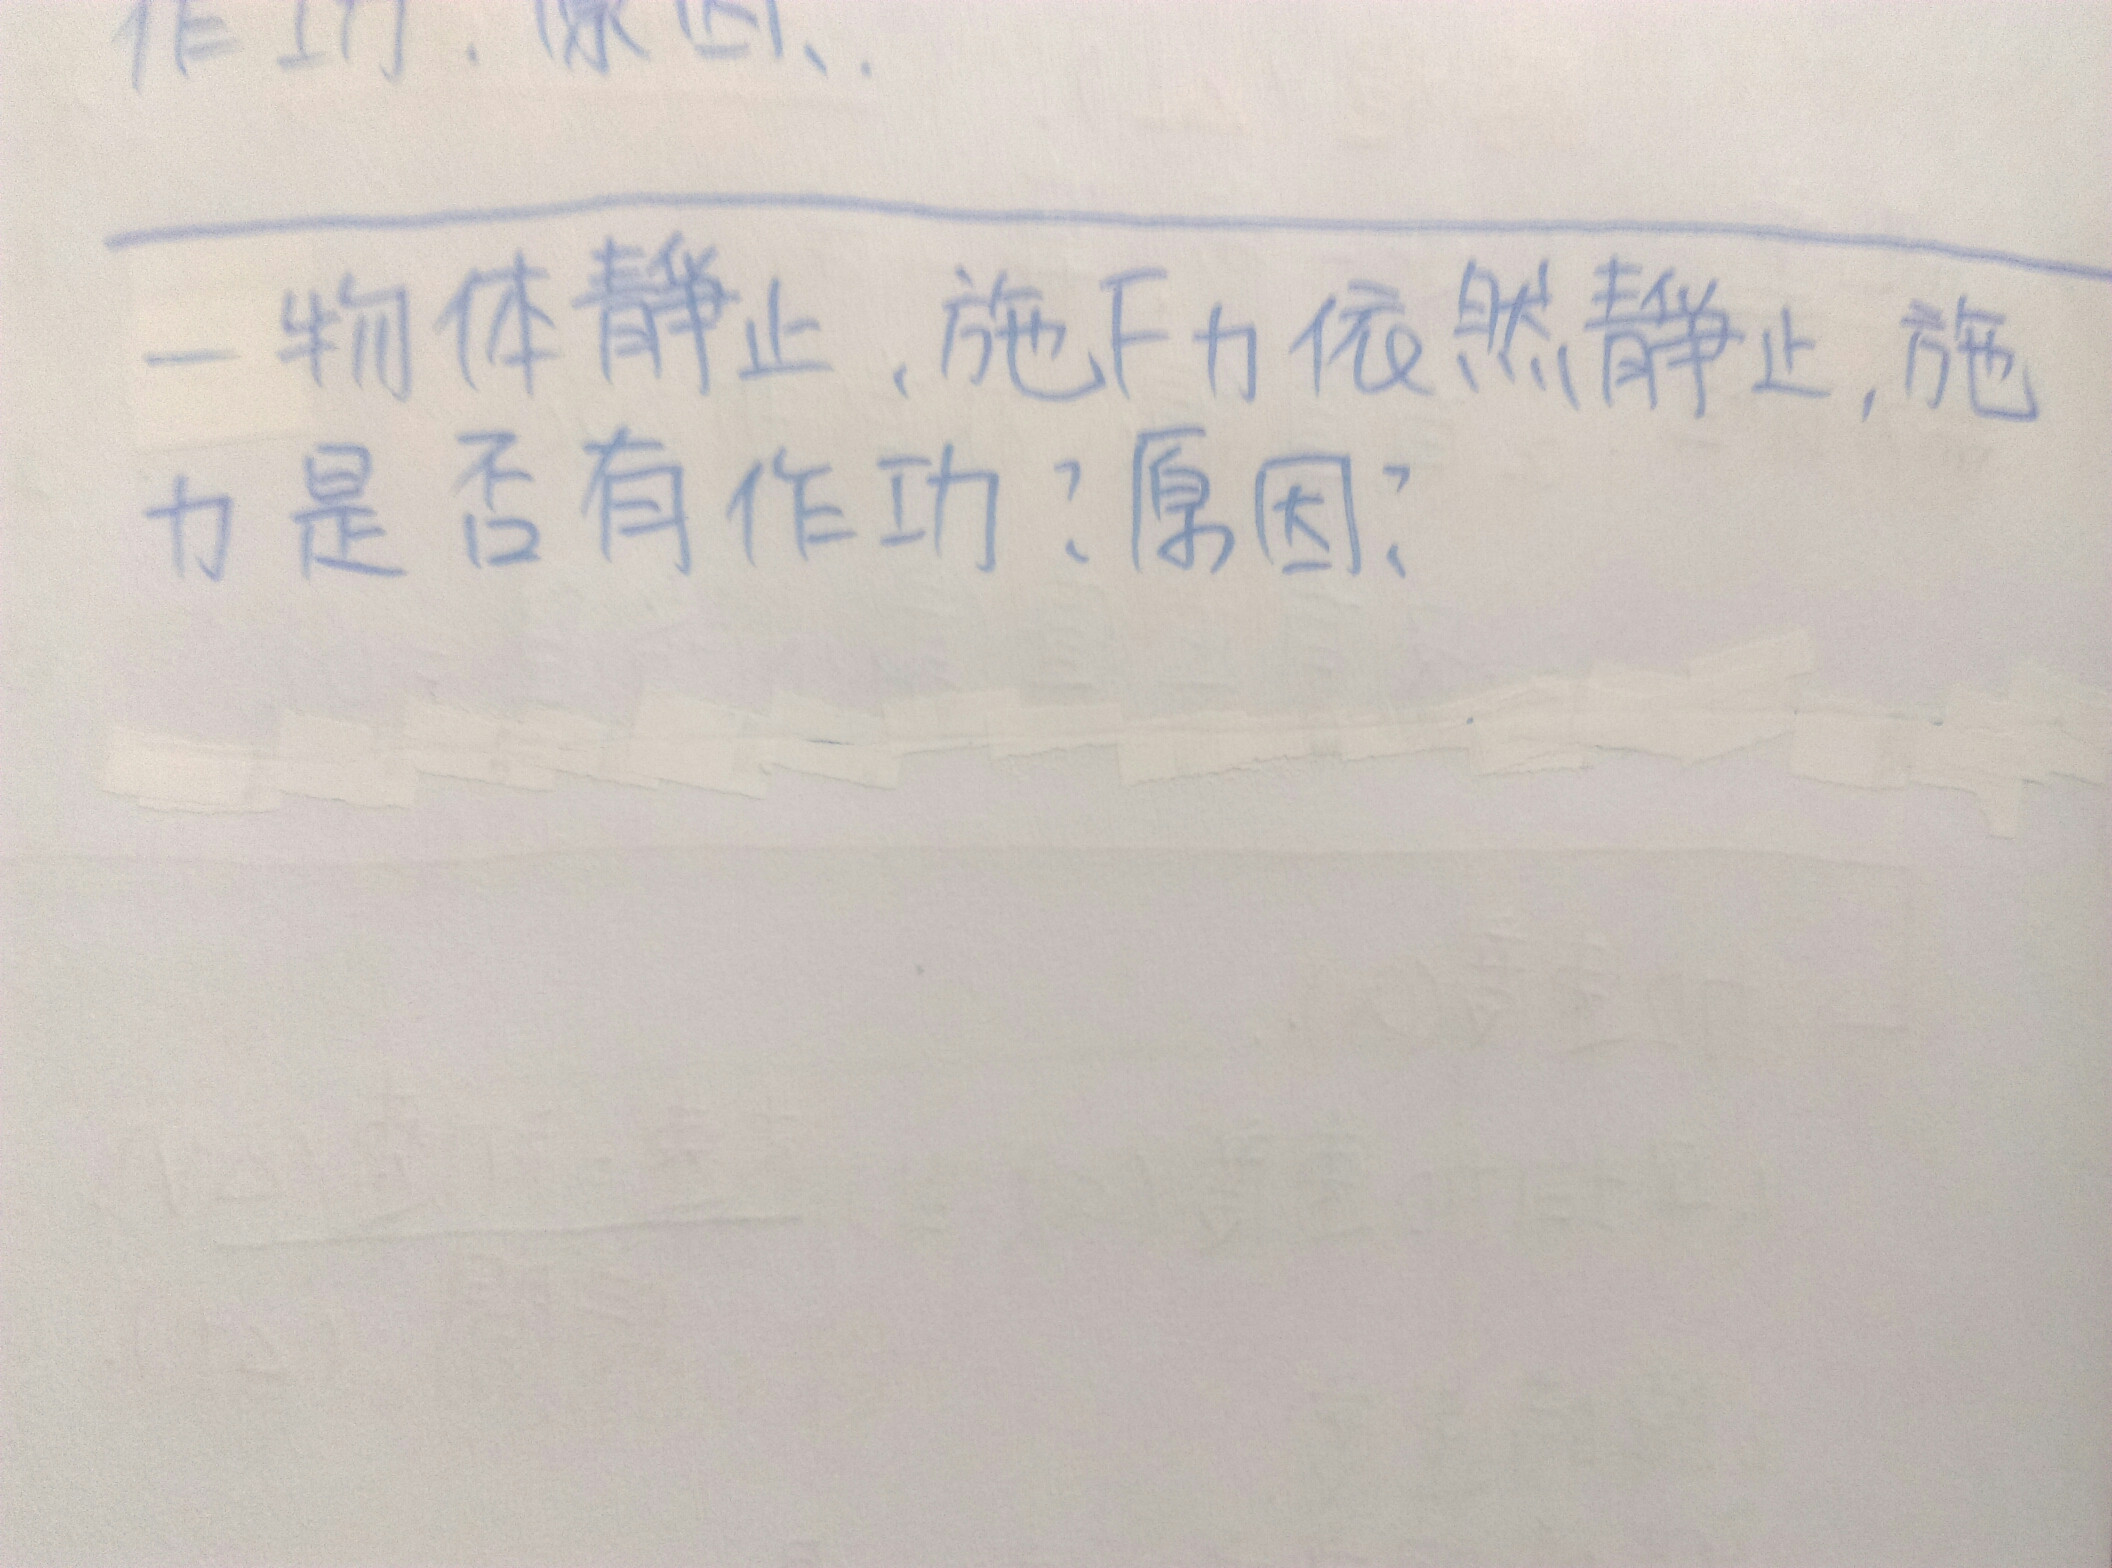 作功.原因..
一物体静止,施F力依然静止,施
力是否有作功?原因?